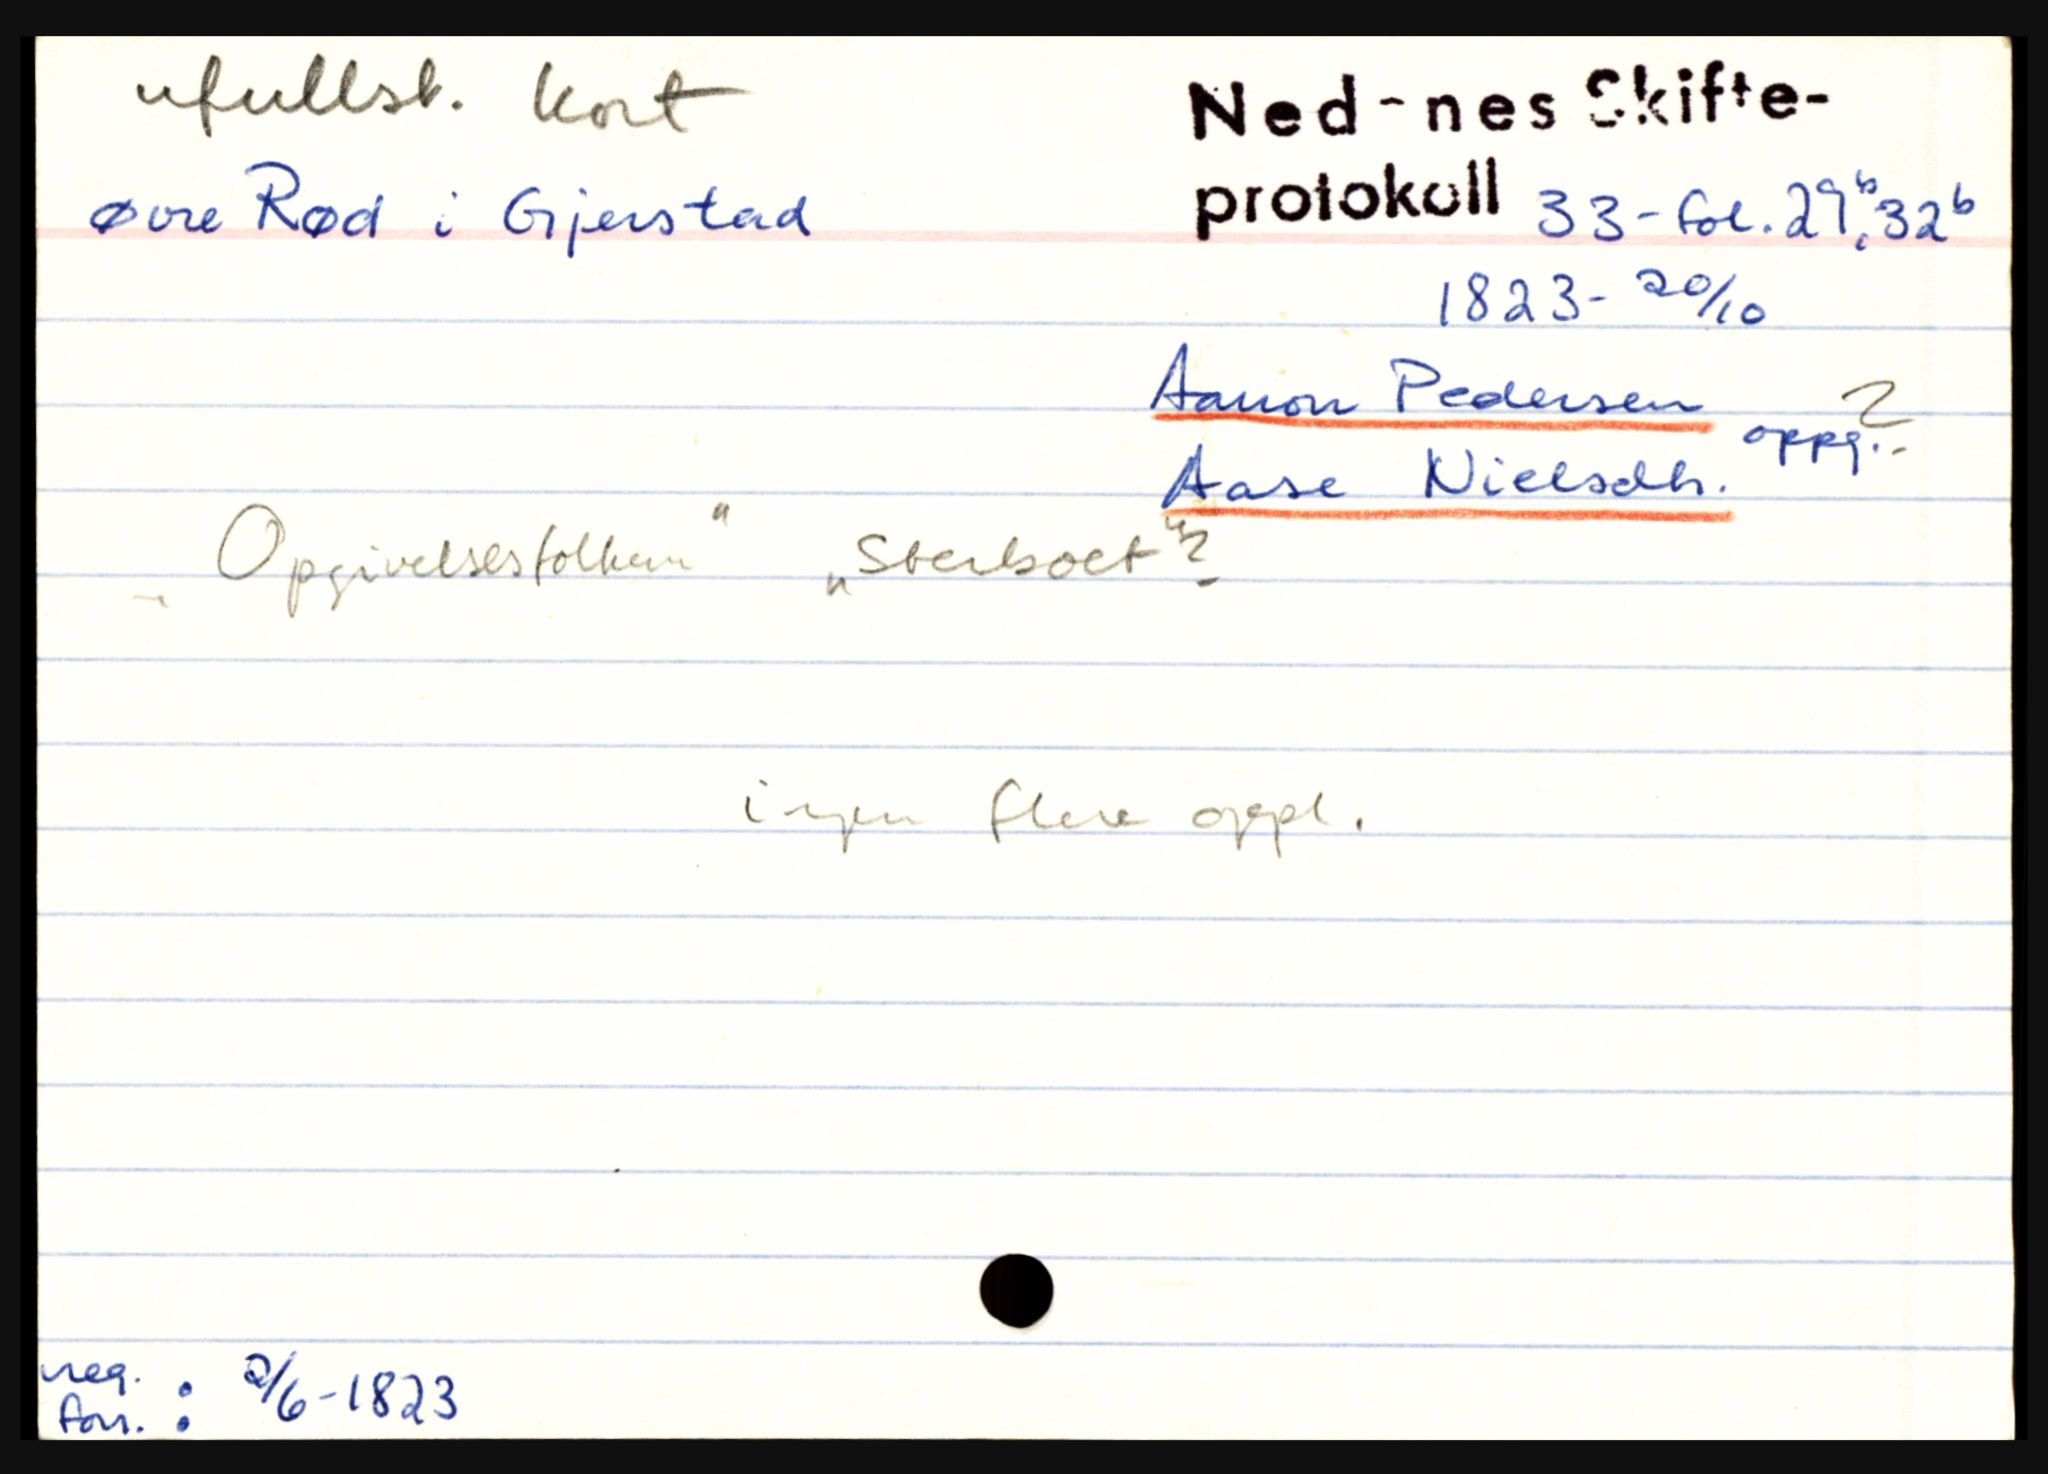 ufullst. kort
Ned-nes Skifte-
øvre Rød i Gjerstad
protokoll 33 - fol. 29b, 32b
1823 - 20/10
Aanon Pedersen ?
oppg.-
Aase Nielsdtr.
"Opgivelsesfolkene" "Sterboet"?
ingen flere oppl.
reg. : 2/6 - 1823
forr. :